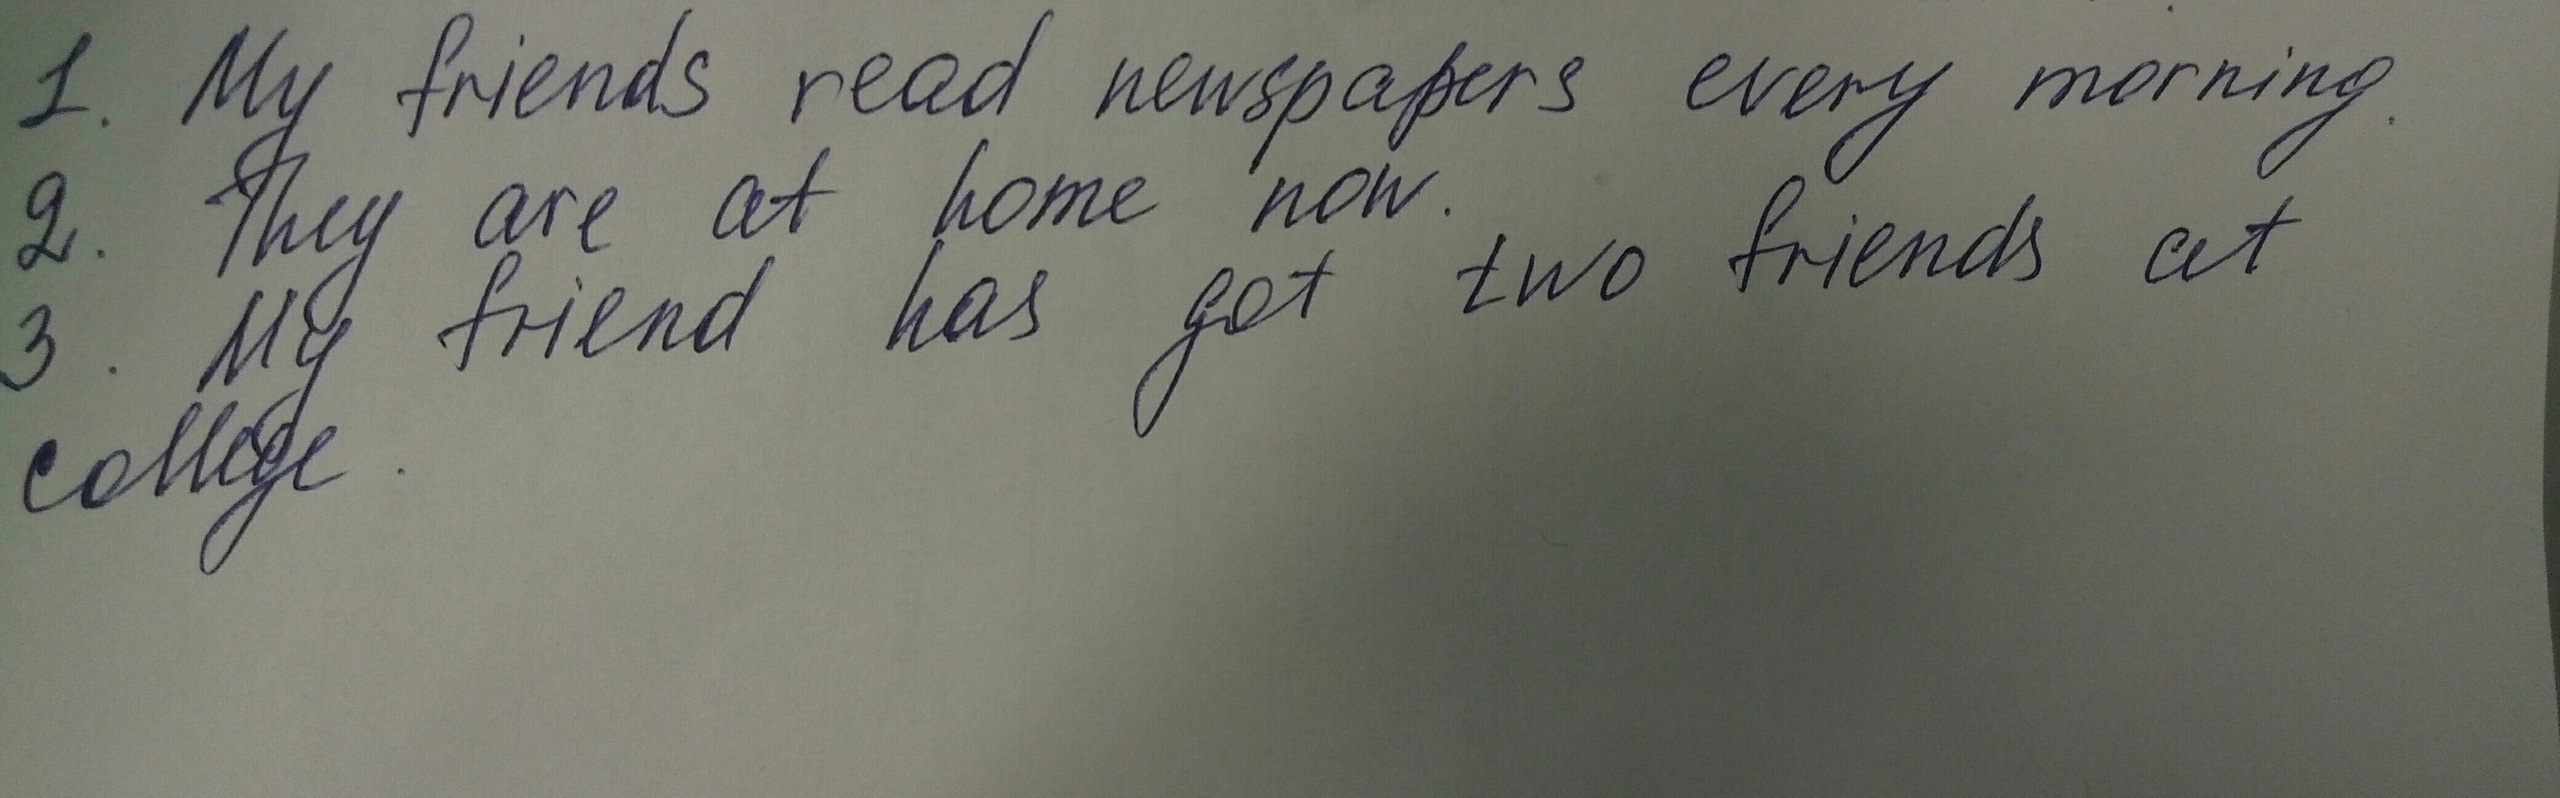 1. My friends read newspapers every morning.
2. They are at home now.
3. My friend has got two friends at
college.